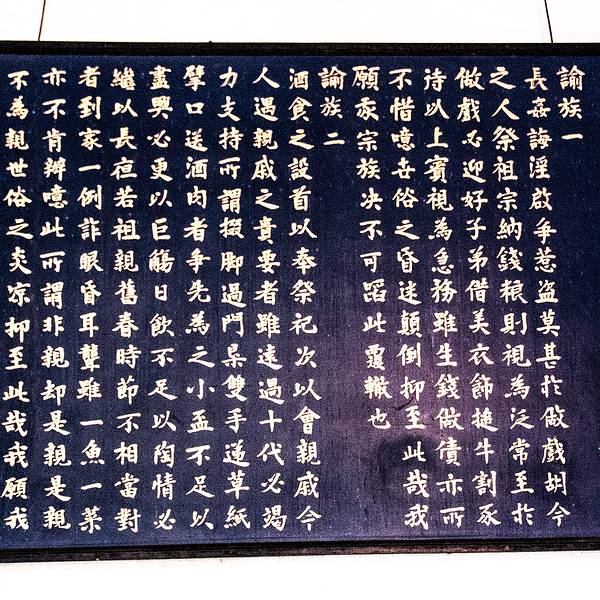 諭族一
長姦誨淫啟爭惹盜莫甚扵做戲胡今
之人祭祖宗納錢粮則視為泛常至扵
做戲必迎好子弟借美衣飾搥牛割豕
待以上賓視為急務雖生錢做債亦所
不惜噫世俗之昏迷顛倒抑至此哉我
願宗族决不可蹈此覆轍也
諭族二
酒食之設首以奉祭祀次以會親戚今
人遇親戚之貴要者雖遠過十代必竭
力支持所謂掇脚過門杲雙手遞草紙
擘口送酒肉者爭先為之小盃不足以
盡興必更以巨觴日飲不足以陶情必
繼以長夜若祖親舊春時節不相當對
者到家一例詐眼昏耳聾雖一魚一菜
亦不肯辦噫此所謂非親却是親是親
不為親世俗之炎凉抑至此哉我願我